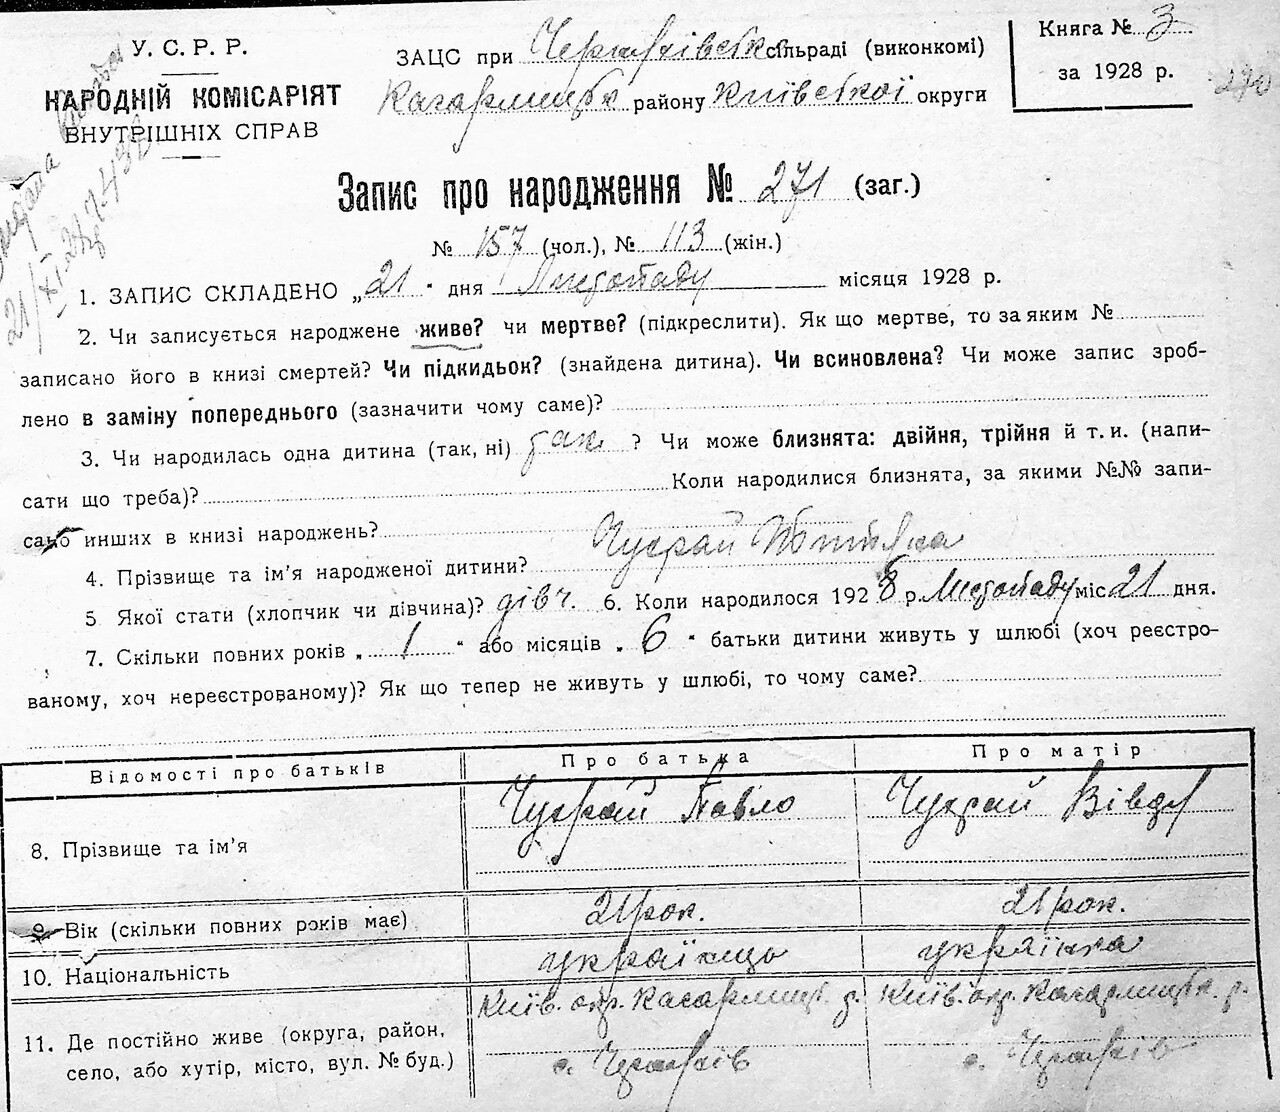 У. С. Р. Р.
НАРОДНІЙ КОМІСАРІЯТ
ВНУТРІШНІХ СПРАВ
ЗАЦС при Черняхівськ сільраді (виконкомі)
Кагарлицьк району Київської округи
Книга № 3
за 1928 р.
Запис про народження № 271 (заг.)
№ 157 (чол.), № 113 (жін.)
1. ЗАПИС СКЛАДЕНО „21" дня Листопаду місяця 1928 р.
2. Чи записується народжене живе? чи мертве? (підкреслити). Як що мертве, то за яким №
записано його в книзі смертей? Чи підкидьок? (знайдена дитина). Чи всиновлена? Чи може запис зроб-
лено в заміну попереднього (зазначити чому саме)?
3. Чи народилась одна дитина (так, ні) так ? Чи може близнята: двійня, трійня й т. и. (напи-
сати що треба)? Коли народилися близнята, за якими №№ запи-
сано инших в книзі народжень?
4. Прізвище та ім'я народженої дитини? Чухрай
5 Якої стати (хлопчик чи дівчина)? дівч. 6. Коли народилося 1928 р. Листопаду міс 21 дня.
7. Скільки повних років „ 1 " або місяців „ 6 " батьки дитини живуть у шлюбі (хоч реєстро-
ваному, хоч нереєстрованому)? Як що тепер не живуть у шлюбі, то чому саме?
Відомості про батьків Про батька Про матір
8. Прізвище та ім'я Чухрай Павло Чухрай Вівдя
9. Вік (скільки повних років має) 21 рок. 21 рок.
10. Національність українць українка
11. Де постійно живе (округа, район, Київ. окр. Кагарлицьк. р. Київ. окр. Кагарлицьк. р.
село, або хутір, місто, вул. № буд.) с. Черняхів с. Черняхів